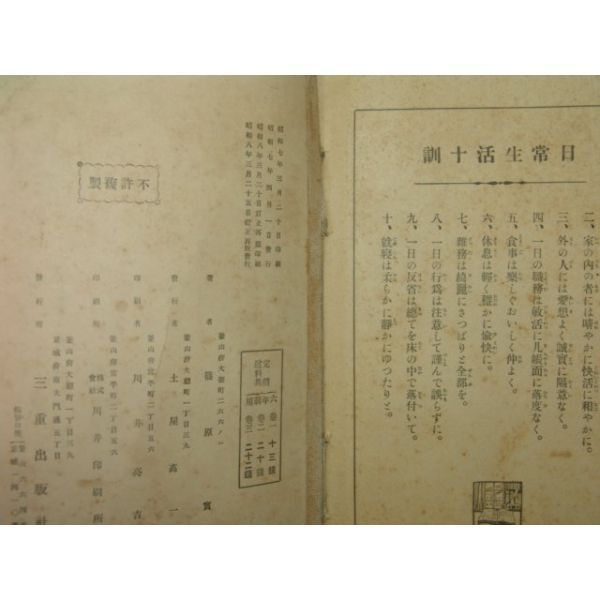 日常生活十訓
二、家の内の者には晴やかに快活に和やかに。
三、外の人には愛想よく誠實に隔意なく。
四、一日の職務は敏活に几帳面に落度なく。
五、食事は樂しくおいしく仲よく。
六、休息は輕く靜かに愉快に。
七、雜務は綺麗にさつぱりと全部を。
八、一日の行爲は注意して謹んで誤らずに。
九、一日の反省は總てを床の中で落付いて。
十、就寢は柔らかに靜かにゆつたりと。
昭和七年三月二十日印刷
昭和七年四月一日發行
昭和八年三月二十日訂正再版印刷
昭和八年三月二十五日訂正再版發行
不許複製
定價
六年制用
卷一 十三錢
卷二 二十錢
卷三 二十二錢
著者 篠原實
發行者 土屋高一
印刷者 川井亮吉
印刷所 株式會社 川井印刷所
發行所 三重出版社